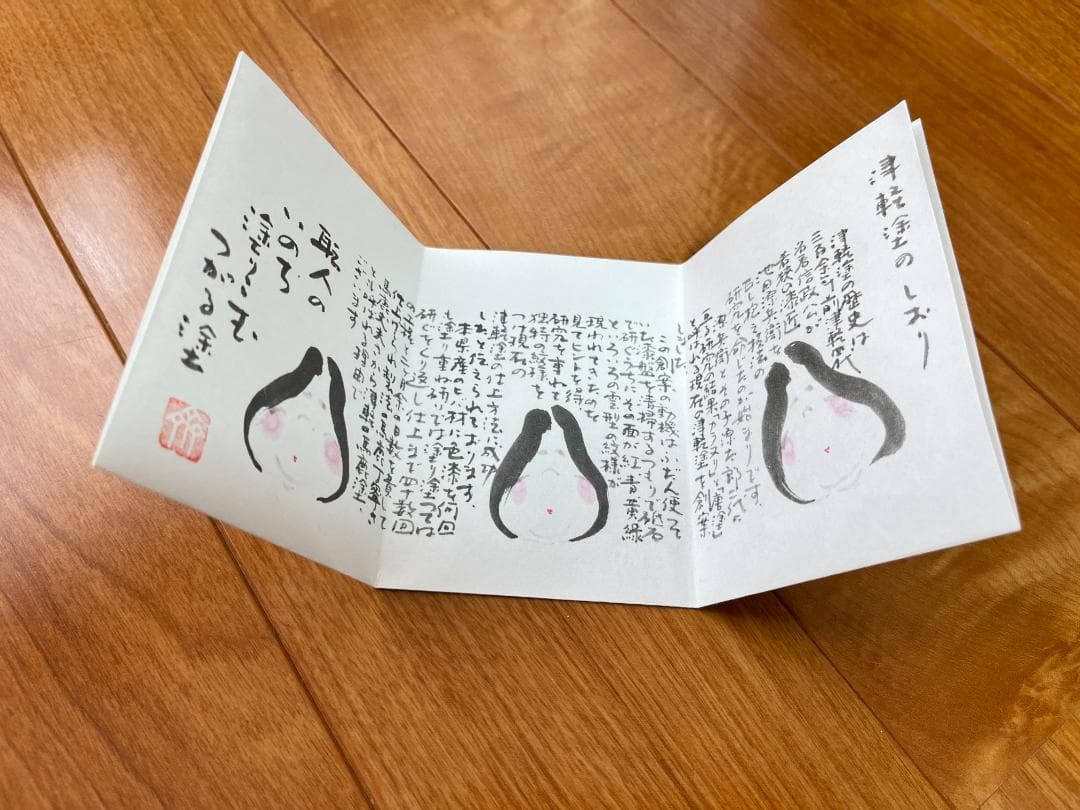 津軽塗のしおり
津軽塗の歴史は
三百余年前津軽四代
名君信政公が
若狭の漆匠
池田源兵衛を
召し抱え技法の
研究を命じたのが始まりです。
源兵衛とその子源太郎二代の
研究の結果「からぬり」と「唐塗」
と呼ばれる現在の津軽塗を創案
しました。
この創案の動機はふだん使って
いる漆盤を清掃するつもりで砥石
で研ぐうちに、その面が紅、青、黄、緑
といろいろの雲型の紋様が
現われてきたのを
見てヒントを得
研究を重ねて
独特の紋様を
つけ現在の
津軽塗の仕上方法に成功
したと伝えられております。
本県産のヒバ材へ色漆を何回
も塗り重ね研いでは塗り塗っては
研ぐをくり返し仕上まで四十数回
の工程と二ヶ月余の日数を費して
仕上げられ
と呼ばれる理由で
ございます。
職人の
いのち
塗りこむ
つがる塗